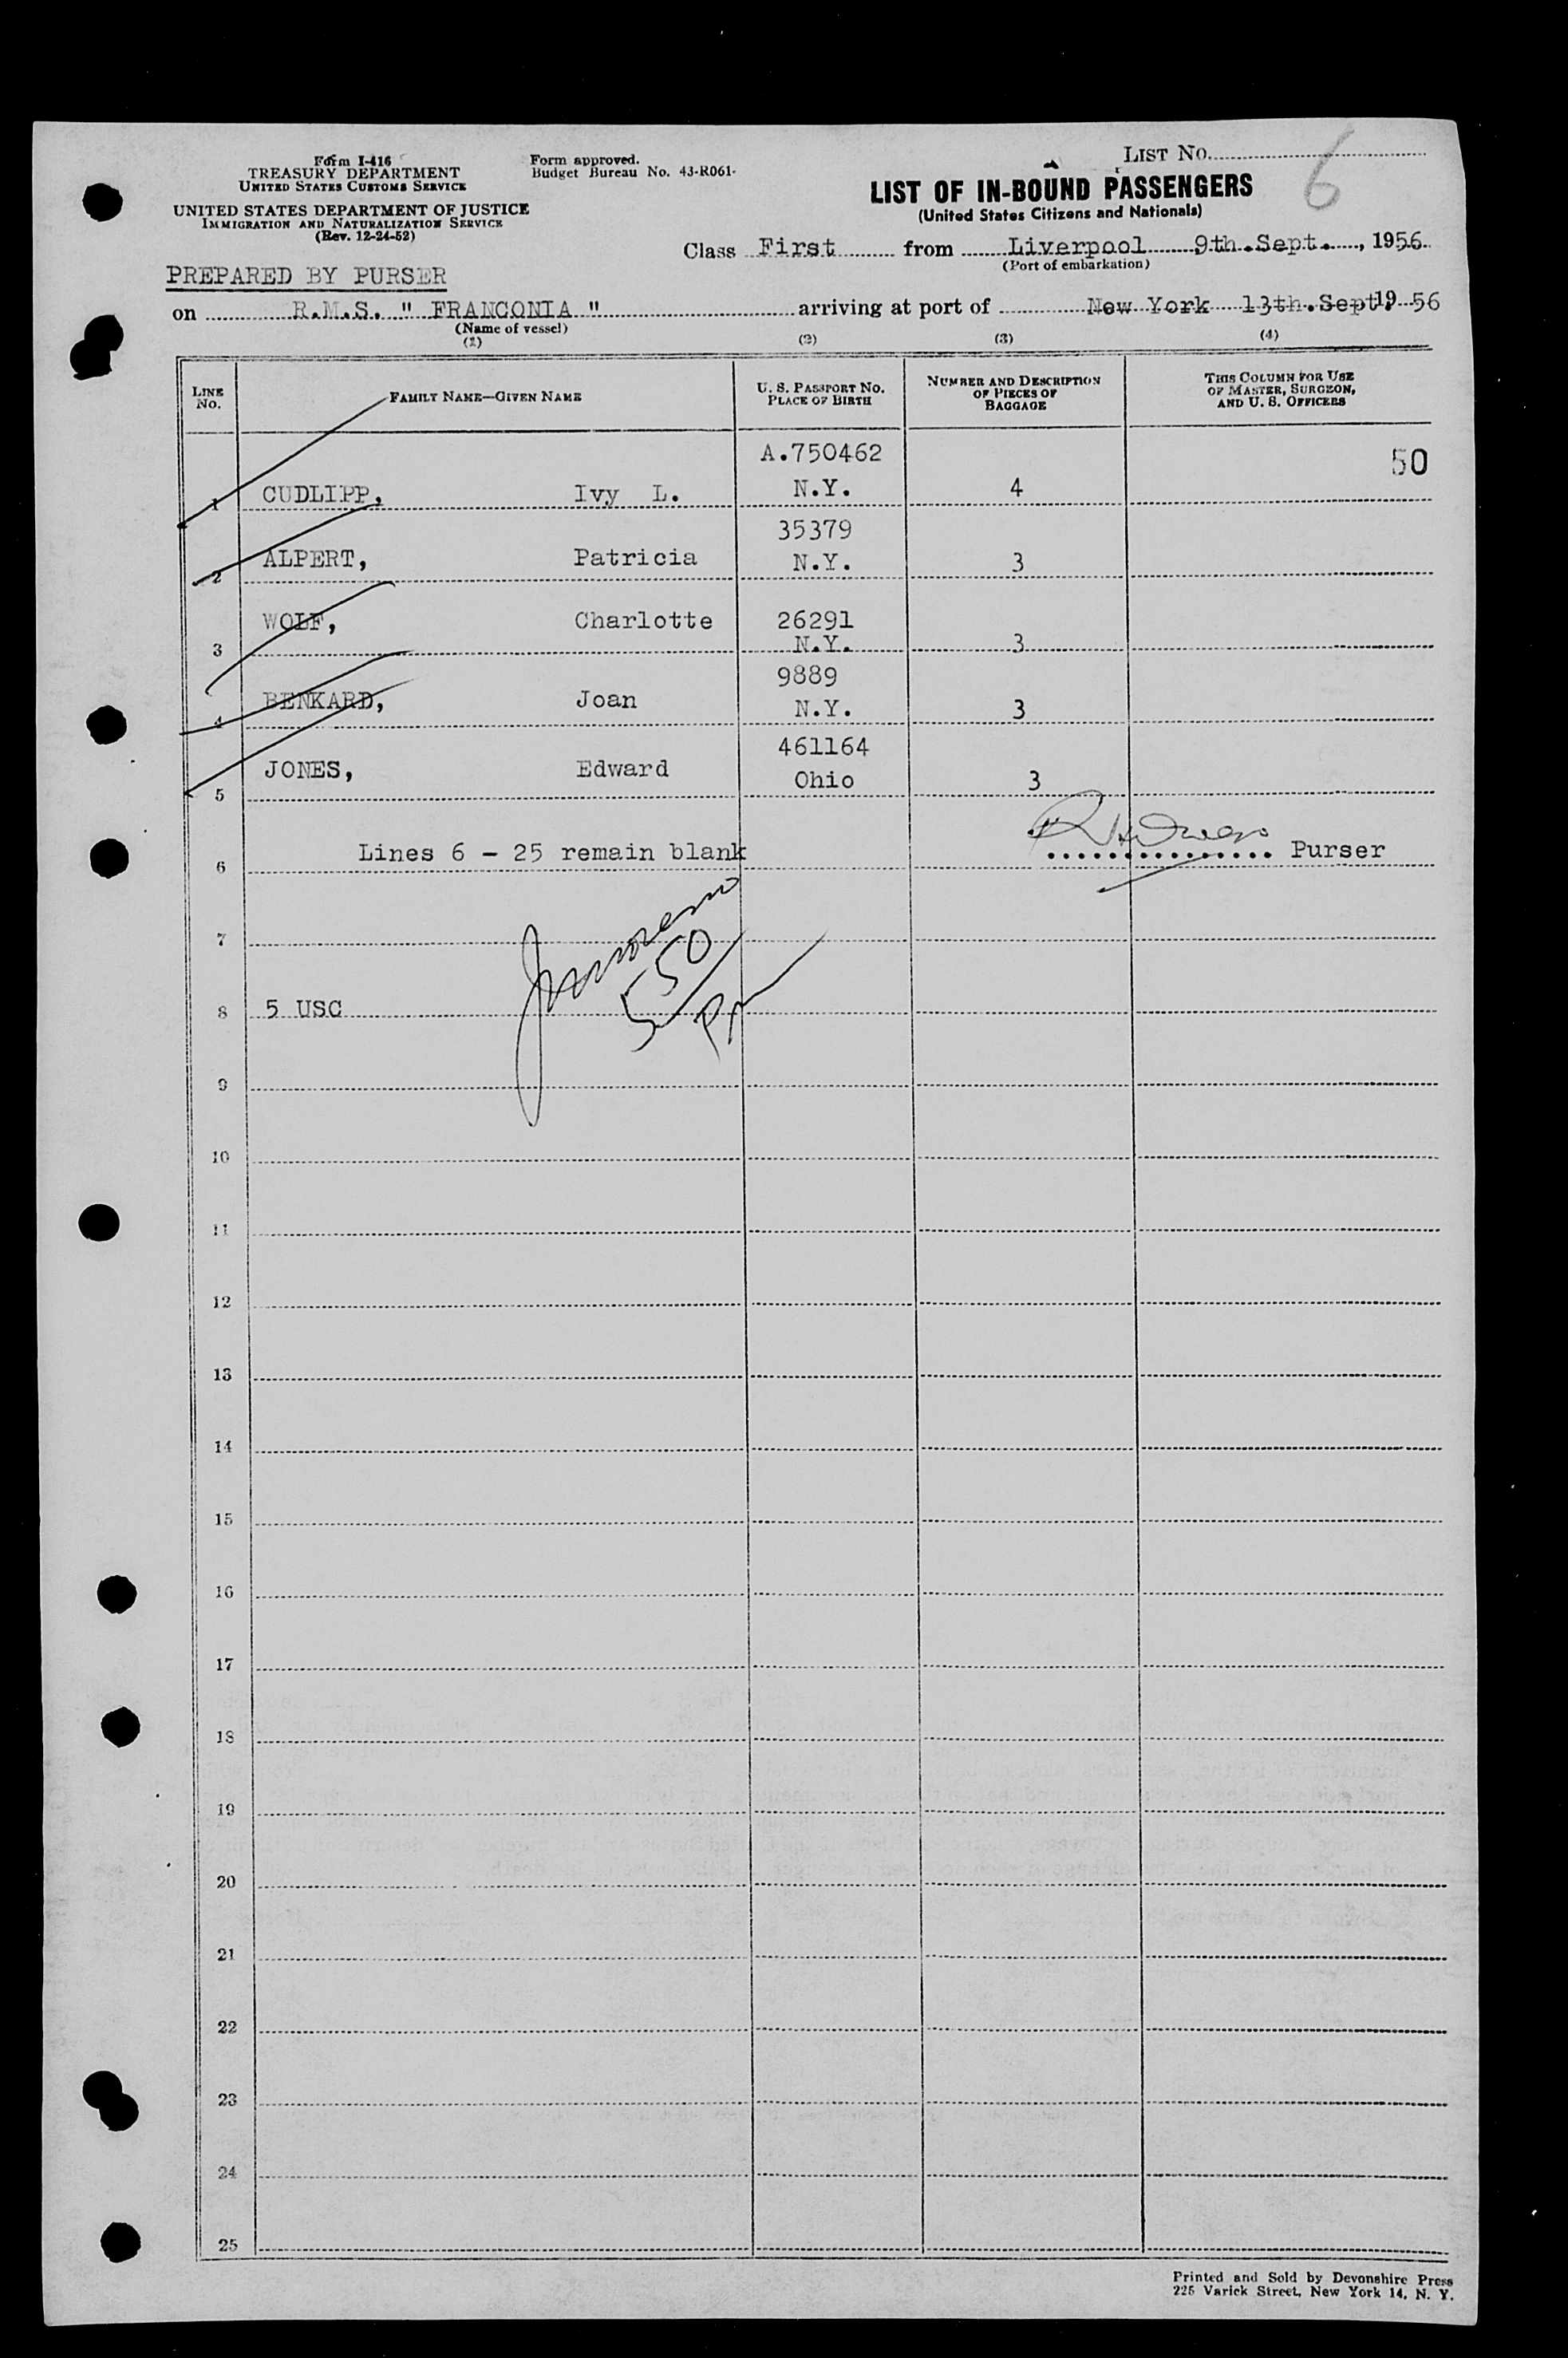 Form I-416
TREASURY DEPARTMENT
UNITED STATES CUSTOMS SERVICE
UNITED STATES DEPARTMENT OF JUSTICE
IMMIGRATION AND NATURALIZATION SERVICE
(Rev. 12-24-52)
Form approved.
Budget Bureau No. 43-R061-
LIST NO. 6
LIST OF IN-BOUND PASSENGERS
(United States Citizens and Nationals)
Class First from Liverpool 9th.Sept., 1956
(Port of embarkation)
PREPARED BY PURSER
on R.M.S. " FRANCONIA " arriving at port of New York 13th.Sept. 19 56
(Name of vessel)
(1) (2) (3) (4)
LINE NO. FAMILY NAME—GIVEN NAME U. S. PASSPORT NO. PLACE OF BIRTH NUMBER AND DESCRIPTION OF PIECES OF BAGGAGE THIS COLUMN FOR USE OF MASTER, SURGEON, AND U. S. OFFICERS
A.750462 50
1 CUDLIPP, Ivy L. N.Y. 4
35379
2 ALPERT, Patricia N.Y. 3
WOLF, Charlotte 26291
3 N.Y. 3
9889
4 BENKARD, Joan N.Y. 3
461164
JONES, Edward Ohio 3
5
6 Lines 6 - 25 remain blank Purser
7
550
8 5 USC
9
10
11
12
13
14
15
16
17
18
19
20
21
22
23
24
25
Printed and Sold by Devonshire Press
225 Varick Street, New York 14, N. Y.